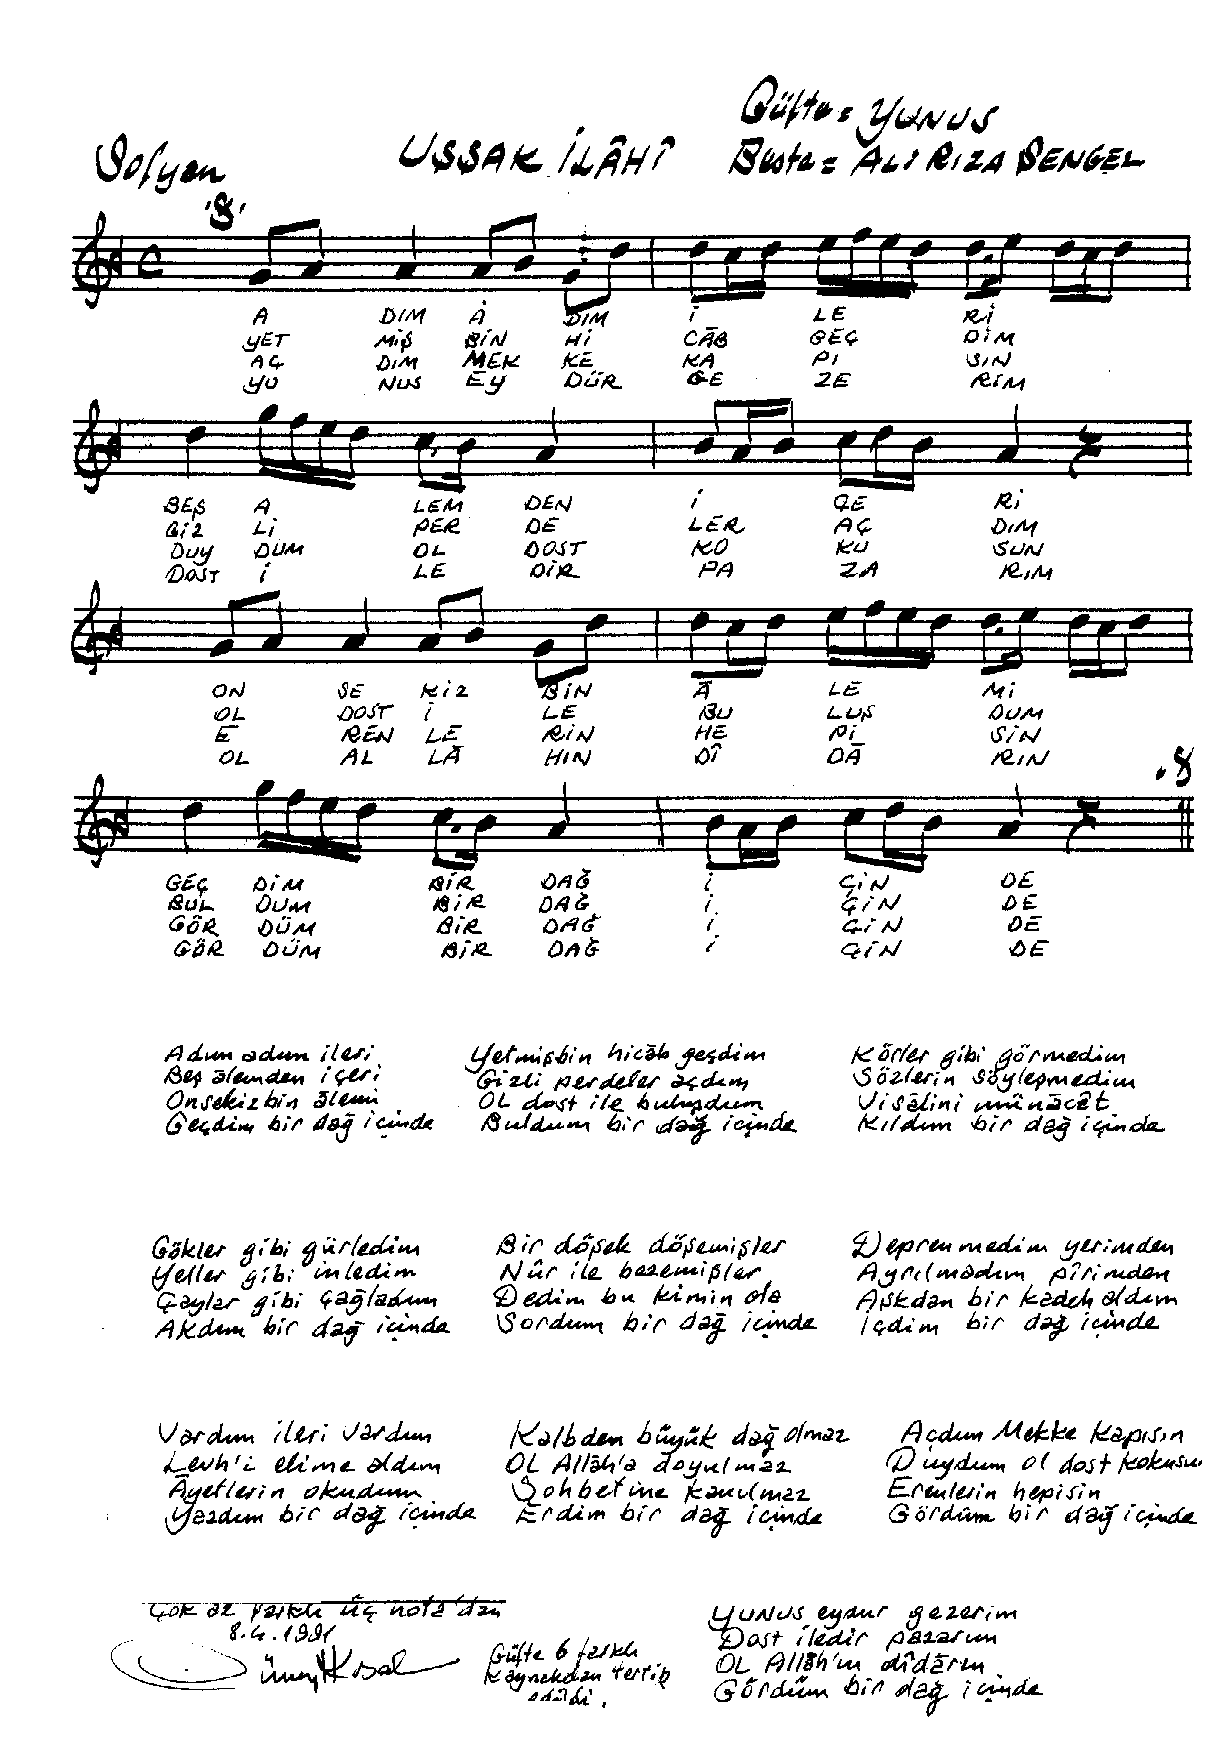 Güfte = YUNUS
Sofyan
UŞŞAK İLÂHÎ
Beste = ALİ RIZA ŞENGEL
A DIM A DIM İ LE Rİ
YET MİŞ BİN Hİ CÂB GEÇ DİM
AÇ DIM MEK KE KA PI SIN
YU NUS EY DÜR GE ZE RİM
BEŞ A LEM DEN İ ÇE Rİ
GİZ Lİ PER DE LER AÇ DIM
DUY DUM OL DOST KO KU SUN
DOST İ LE DİR PA ZA RIM
ON SE KİZ BİN Â LE Mİ
OL DOST İ LE BU LUŞ DUM
E REN LE RİN HE Pİ SİN
OL AL LÂ HIN DÎ DÂ RIN
GEÇ DİM BİR DAĞ İ ÇİN DE
BUL DUM BİR DAĞ İ ÇİN DE
GÖR DÜM BİR DAĞ İ ÇİN DE
GÖR DÜM BİR DAĞ İ ÇİN DE
Adım adım ileri
Beş âlemden içeri
Onsekizbin âlemi
Geçdim bir dağ içinde
Yetmişbin hicâb geçdim
Gizli perdeler açdım
OL dost ile buluşdum
Buldum bir dağ içinde
Körler gibi görmedim
Sözlerin söyleşmedim
Visâlini münâcât
Kıldım bir dağ içinde
Gökler gibi gürledim
Yeller gibi inledim
Çaylar gibi çağladım
Akdım bir dağ içinde
Bir döşek döşemişler
Nûr ile bezemişler
Dedim bu kimin ola
Sordum bir dağ içinde
Deprenmedim yerimden
Ayrılmadım pîrimden
Aşkdan bir kadeh aldım
İçdim bir dağ içinde
Vardım ileri vardım
Levh'i elime aldım
Âyetlerin okudum
Yazdım bir dağ içinde
Kalbden büyük dağ olmaz
OL Allâh'a doyulmaz
Sohbetine kanılmaz
Erdim bir dağ içinde
Açdım Mekke kapısın
Duydum ol dost kokusu
Erenlerin hepisin
Gördüm bir dağ içinde
Çok az farklı üç nota'dan
8.4.1991
Güfte 6 farklı
kaynakdan tertip
edildi.
YUNUS eydur gezerim
Dost iledir pazarım
OL Allâh'ın dîdârın
Gördüm bir dağ içinde